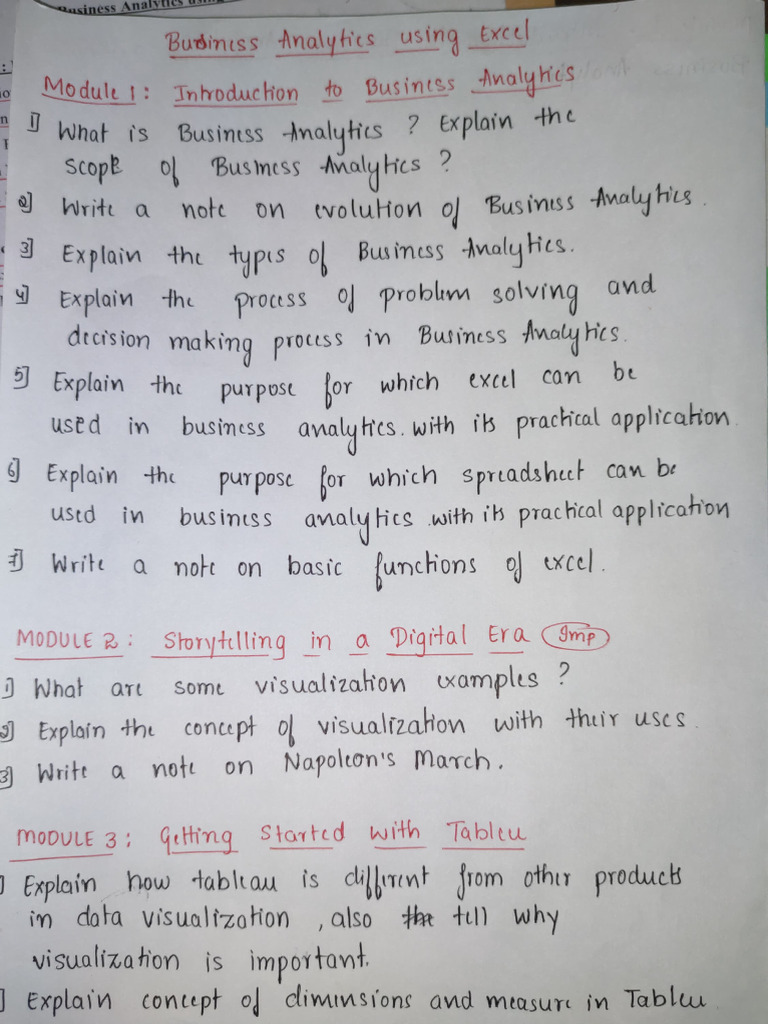 Business Analytics
Business Analytics using Excel
Module 1: Introduction to Business Analytics
1] What is Business Analytics ? Explain the
scope of Business Analytics ?
2] Write a note on evolution of Business Analytics.
3] Explain the types of Business Analytics.
4] Explain the process of problem solving and
decision making process in Business Analytics.
5] Explain the purpose for which excel can be
used in business analytics. with its practical application.
6] Explain the purpose for which spreadsheet can be
used in business analytics .with its practical application
7] Write a note on basic functions of excel.
MODULE 2: Storytelling in a Digital Era Imp
1] What are some visualization examples ?
2] Explain the concept of visualization with their uses.
3] Write a note on Napoleon's March.
MODULE 3: Getting Started with Tableu
] Explain how tableau is different from other products
in data visualization , also tell why
visualization is important.
] Explain concept of dimensions and measure in Tableu.